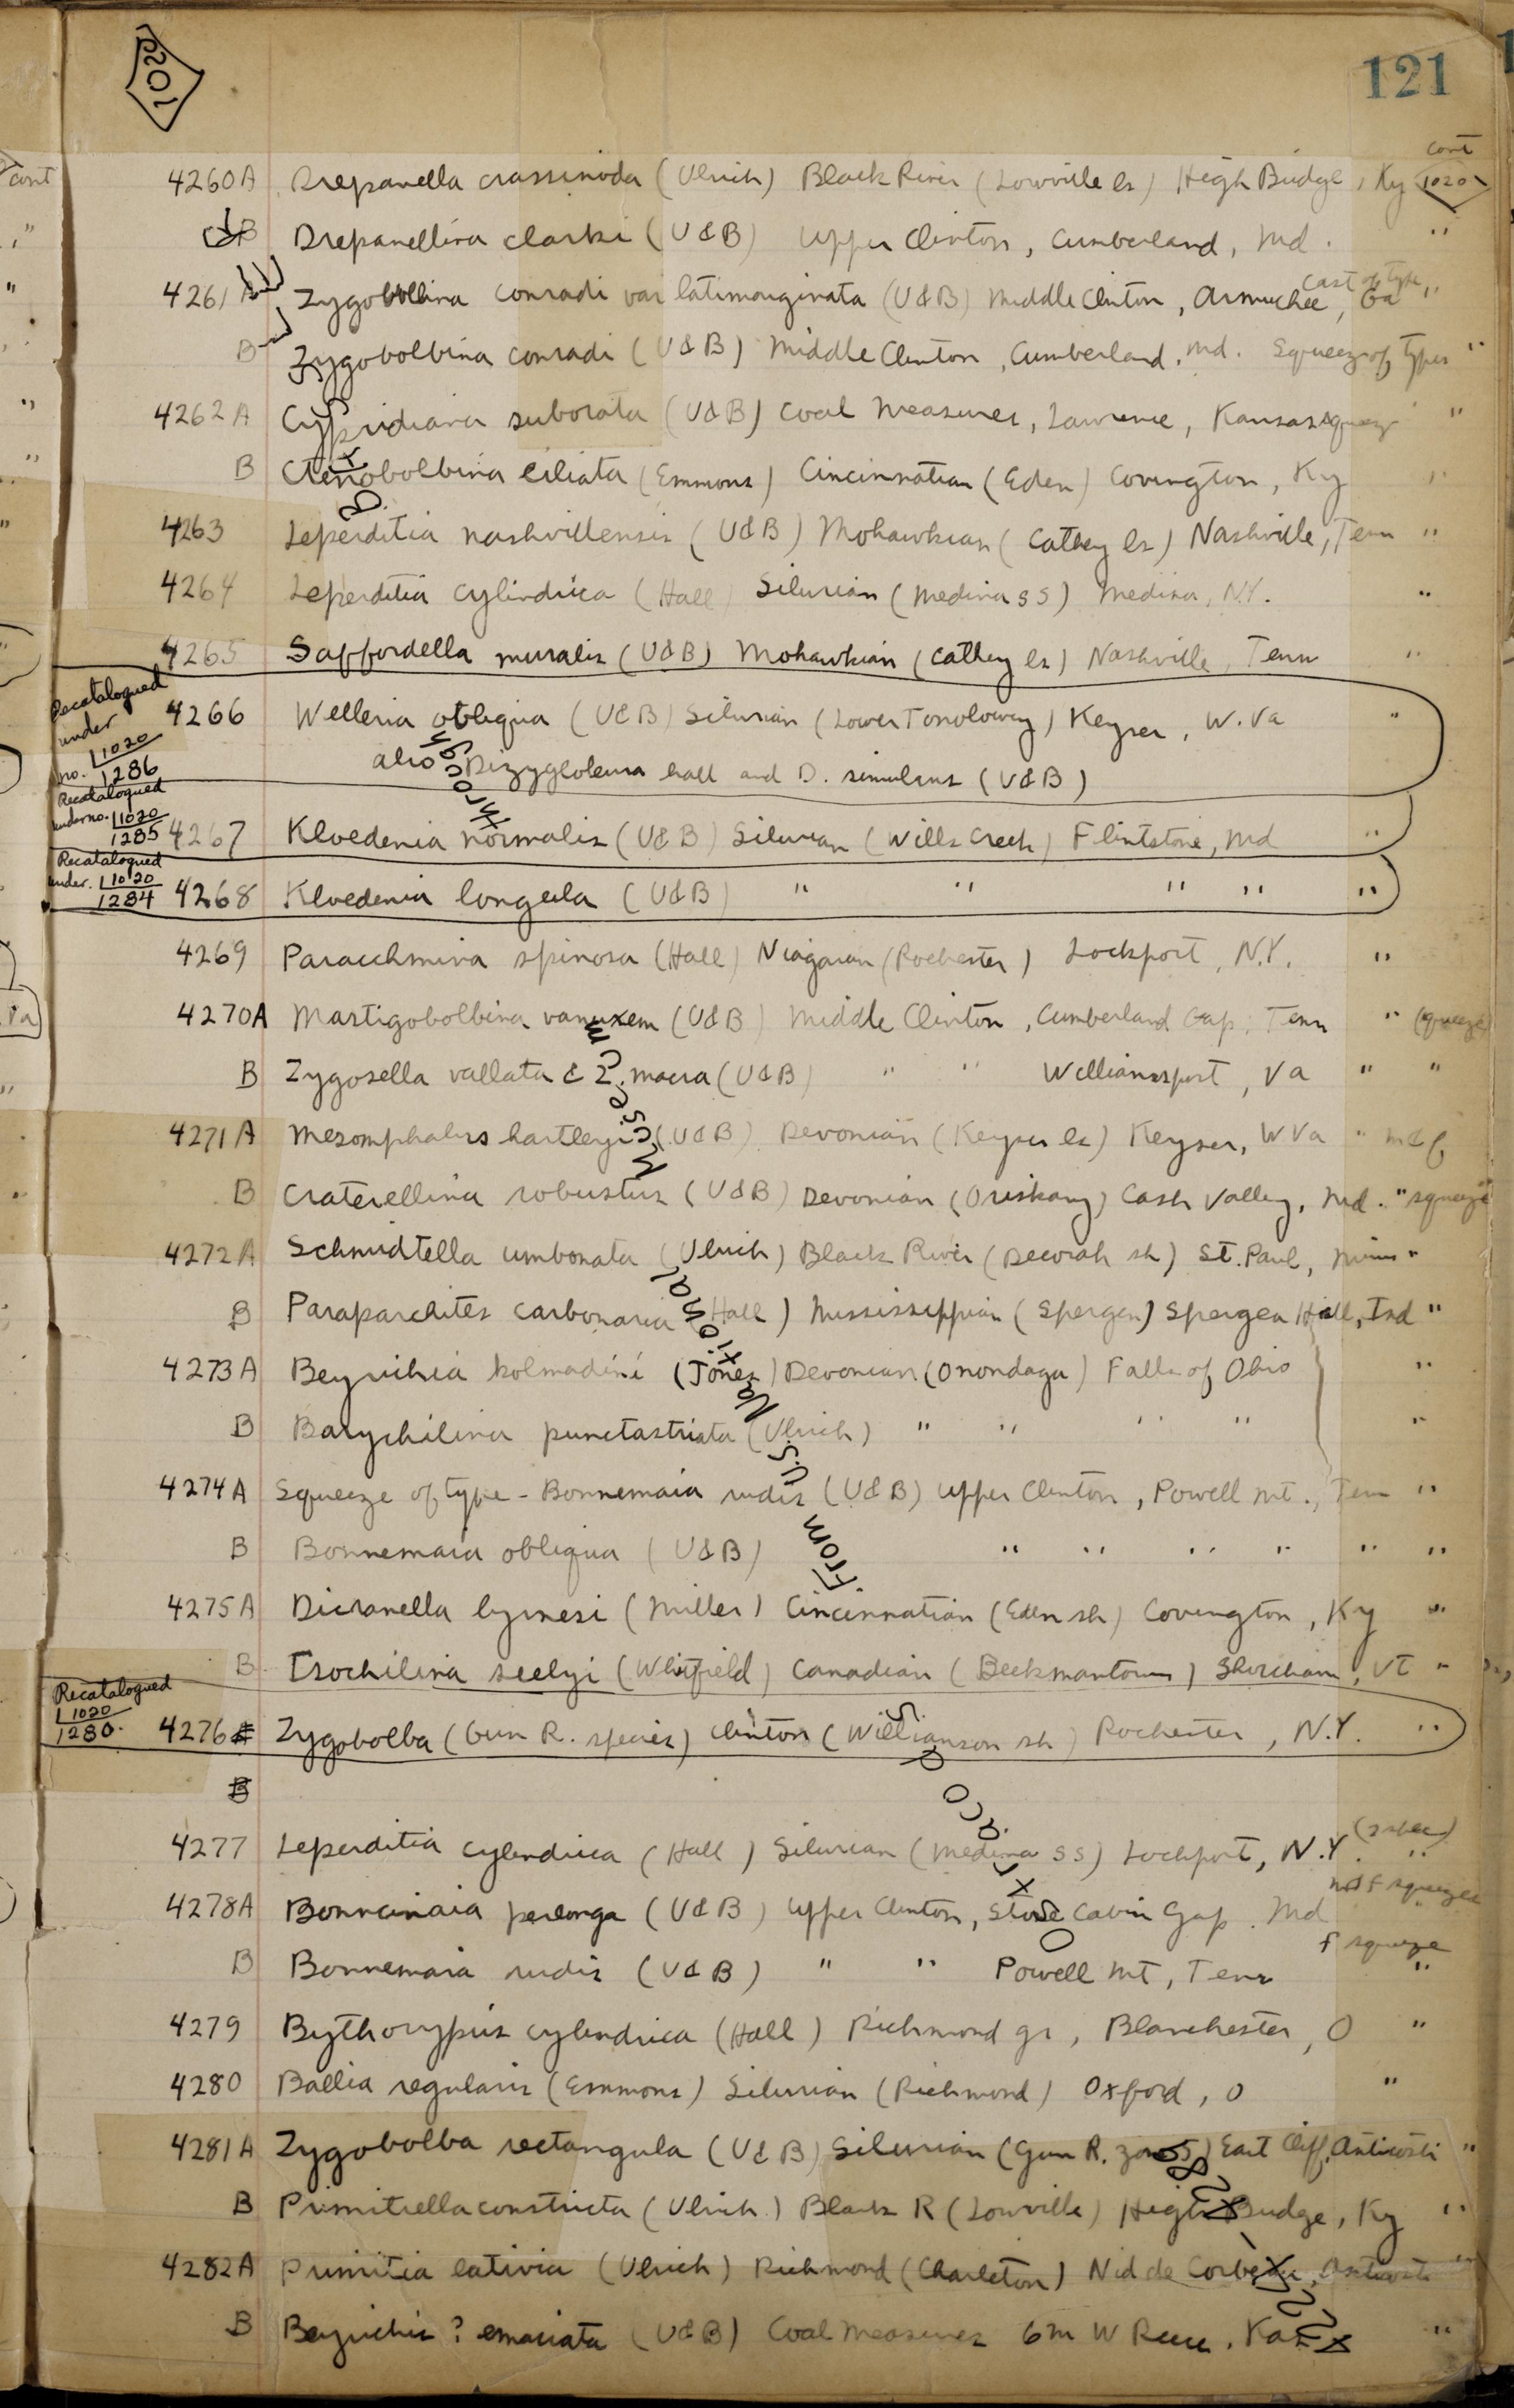 1020
121
cont
cont
4260A Drepanella crassinoda (Ulrich) Black River (Lowville ls) High Bridge, Ky 1020
B Drepanellina clarki (U&B) Upper Clinton, Cumberland, Md. "
cast of type
4261 A Zygobolbina conradi var latimarginata (U&B) Middle Clinton, Armuchee, Ga "
B Zygobolbina conradi (U&B) Middle Clinton, Cumberland, Md. Squeeze of types "
4262 A Cypridiana suborata (U&B) Coal Measures, Lawrence, Kansas squeeze "
B Ctenobolbina ciliata (Emmons) Cincinnatian (Eden) Covington, Ky "
4263 Leperditia nashvillensis (U&B) Mohawkian (Cathey ls) Nashville, Tenn "
4264 Leperditia cylindrica (Hall) Silurian (Medina SS) Medina, N.Y. "
4265 Saffordella muralis (U&B) Mohawkian (Cathey ls) Nashville, Tenn "
Recatalogued under no. 1020 1286
4266 Welleria obliqua (U&B) Silurian (Lower Tonoloway) Keyser, W. Va "
also Dizygopleura halli and D. simulans (U&B)
Recatalogued under no. 1020 1285
4267 Kloedenia normalis (U&B) Silurian (Wills Creek) Flintstone, Md "
Recatalogued under. 1020 1284
4268 Kloedenia longula (U&B) " " " " "
4269 Paraechmina spinosa (Hall) Niagaran (Rochester) Lockport, N.Y. "
4270A Mastigobolbina vanuxem (U&B) Middle Clinton, Cumberland Gap, Tenn " (squeeze)
B Zygosella vallata & Z. macra (U&B) " " Williamsport, Va " "
4271A Mesomphalus hartleyi (U&B) Devonian (Keyser ls) Keyser, W Va " m & f
B Craterellina robustus (U&B) Devonian (Oriskany) Cash Valley, Md. " squeeze
4272A Schmidtella umbonata (Ulrich) Black River (Decorah sh) St. Paul, Minn "
B Paraparchites carbonaria (Hall) Mississippian (Spergen) Spergen Hill, Ind "
4273A Beyrichia kolmodini (Jones) Devonian (Onondaga) Falls of Ohio "
B Barychilina punctastriata (Ulrich) " " " " "
4274A Squeeze of type - Bonnemaia rudis (U&B) Upper Clinton, Powell Mt., Tenn "
B Bonnemaia obliqua (U&B) " " " " " "
4275A Dicranella bymesi (Miller) Cincinnatian (Eden sh) Covington, Ky "
B Isochilina seelyi (Whitfield) Canadian (Beekmantown) Shoreham, VT "
Recatalogued 1020 1280.
4276 Zygobolba (Gun R. species) Clinton (Williamson sh) Rochester, N.Y. "
B
4277 Leperditia cylindrica (Hall) Silurian (Medina SS) Lockport, N.Y. "
4278A Bonnemaia perlonga (U&B) Upper Clinton, Stone Cabin Gap. Md m & f squeezes
B Bonnemaia rudis (U&B) " " Powell Mt, Tenn f squeeze "
4279 Bythocypris cylindrica (Hall) Richmond gr, Blanchester, O "
4280 Ballia regularis (Emmons) Silurian (Richmond) Oxford, O "
4281A Zygobolba rectangula (U&B) Silurian (Gun R. zone 5) East Cliff, Anticosti "
B Primitiella constricta (Ulrich) Black R (Lowville) High Bridge, Ky "
4282A Primitia lativia (Ulrich) Richmond (Charleton) Nid de Corbeau, Anticosti "
B Beyrichia ? emaciata (U&B) Coal Measures 6 m W Reece, Kas "
From U.S. National Museum through Dr